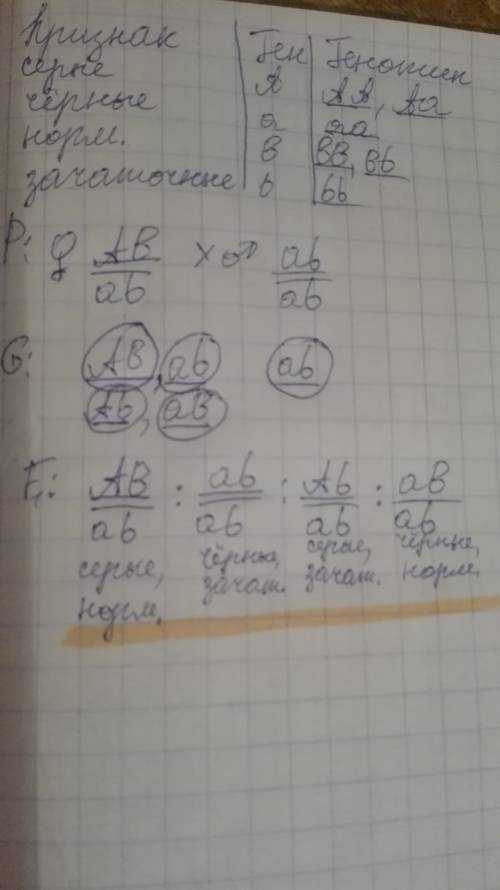 Признак | Ген | Генотип
серые | А | АА, Аа
чёрные | а | аа
норм. | В | ВВ, Вb
зачаточные | b | bb
P: ♀ AB/ab × ♂ ab/ab
G: AB, ab ab
Ab, aB
F₁: AB/ab : ab/ab : Ab/ab : aB/ab
серые, норм. чёрные, зачат. серые, зачат. чёрные, норм.